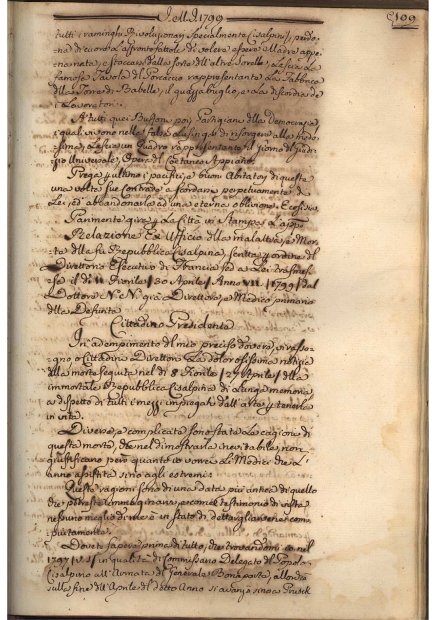 J. M. J. 1799
199
tutti i raminghi Rivoluzionarj, specialmente Cisalpini, perdo,
famoso Tavola di rappresentante la Fabbrica
della Torre di Babelle, il guazzabuglio, e la discordia de
i Lavoratori.
A tutti quei Buffoni poi Partigiani della Democrazia,
i quali vivono nella falsa lusinga di risorgere alla mede,
sima, Lascia un Quadro rappresentante il giorno del Giudi,
zio Universale, Opera del Coetaneo Appiani.
Prega per ultimo i pacifici, e buoni Abitatori di questa
una volta sue Contrade a scordarsi perpetuamente di
Lei, ed abbandonarla ad una eterna oblivione. E così sia
Parimente gira per la Città in Stampa La
Relazione Ex Ufficio della malattia, e Mor,
te della fu Repubblica Cisalpina, scritta per ordine del
Direttorio Esecutivo di Francia, ed a Lei trasmes,
sa il dì 11 Fiorile / 30 Aprile / Anno VII. / 1799 / dal
Dottore N: N: già Direttore, e Medico primario
della Defunta
Cittadino Presidente
In adempimento del mio preciso dovere, vi rasse,
gno o Cittadino Direttore La dolorosissima notizia
della morte seguita nel dì 8 Fiorile / 27 Aprile / della
immortale Repubblica Cisalpina di lunga memoria
a dispetto di tutti i mezzi impiegati dall'arte per tenerla
in vita.
Diverse, e complicate sono state le cagioni di
questa morte, che nel dimostrarla inevitabile, non
giustificano però quanto io vorrei Li Medici che L'
anno assistita sino agli estremi.
Queste ragioni sono di una data più antica di quello
che potreste immaginarvi, e come testimonio di vista
nessuno meglio di me è in stato di dettagliarvene com,
piutamente.
Dovete sapere prima di tutto, che trovandomi io nel
1797 in qualità di Commissario Delegato del Popolo
Cisalpino all'Armata del Generale Bonaparte, allorchè
sulla fine dell'Aprile del detto Anno si avanzò sino a Pruck